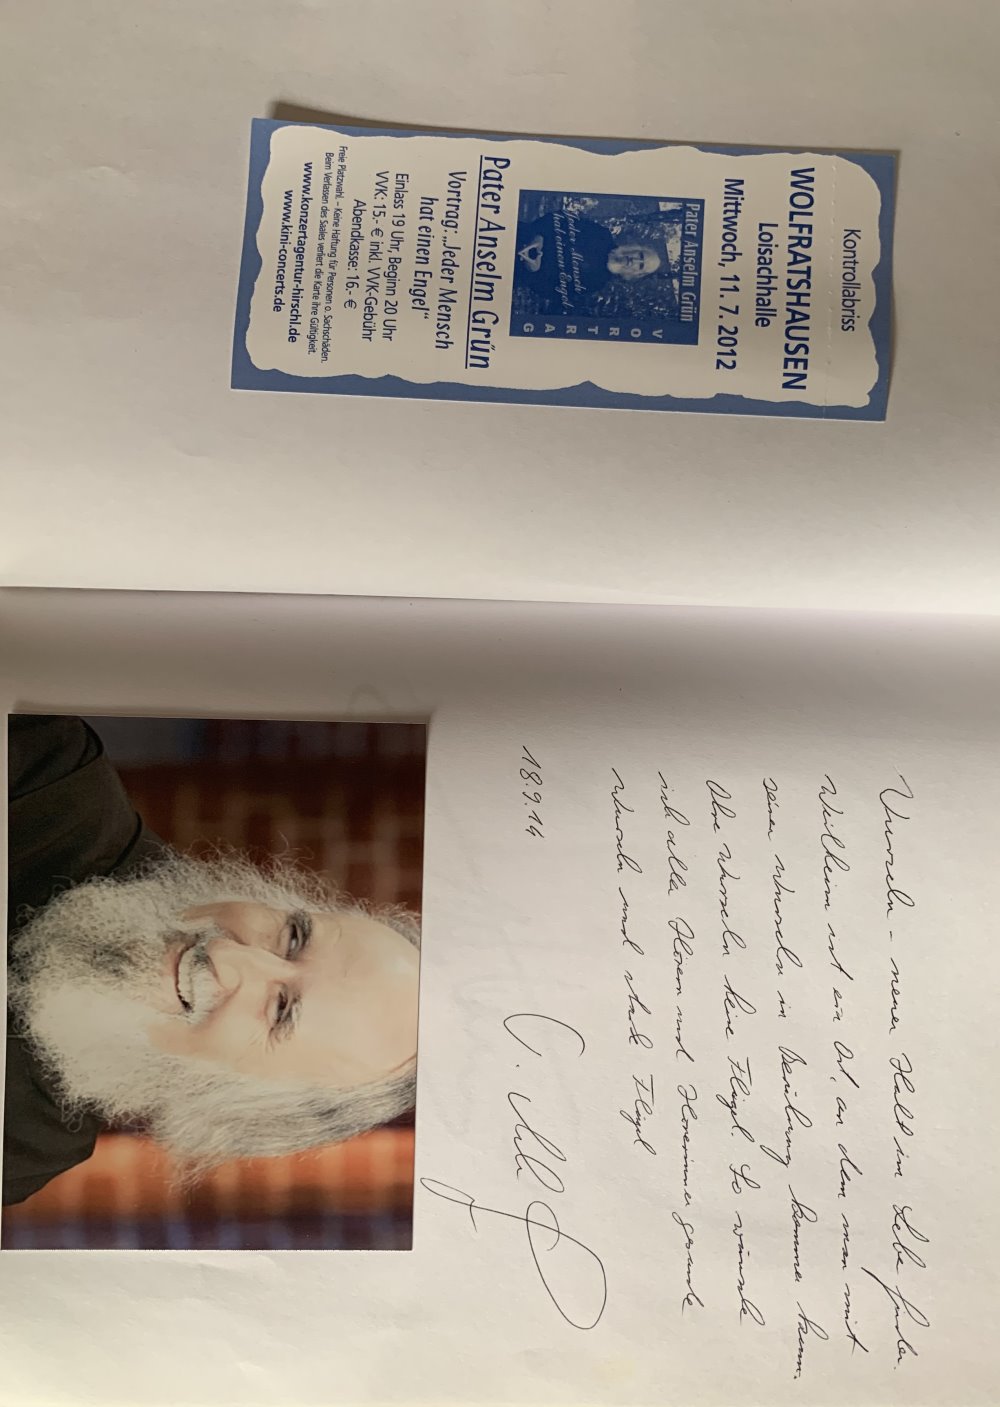 Kontrollabriss
WOLFRATSHAUSEN
Loisachhalle
Mittwoch, 11. 7. 2012
Pater Anselm Grün
VORTRAG
„Jeder Mensch
hat einen Engel“
Pater Anselm Grün
Vortrag: „Jeder Mensch
hat einen Engel“
Einlass 19 Uhr, Beginn 20 Uhr
VVK: 15.- € inkl. VVK-Gebühr
Abendkasse: 16.- €
Freie Platzwahl. – Keine Haftung für Personen o. Sachschäden.
Beim Verlassen des Saales verliert die Karte ihre Gültigkeit.
www.konzertagentur-hirschl.de
www.kini-concerts.de
Wurzeln - meinen Halt im Leben finden.
Weilheim ist ein Ort, an dem man mit
seinen Wurzeln in Berührung kommen kann.
Ohne Wurzeln keine Flügel. So wünsche
ich allen Hörern und Hörerinnen gesunde
Wurzeln und starke Flügel
18.9.14